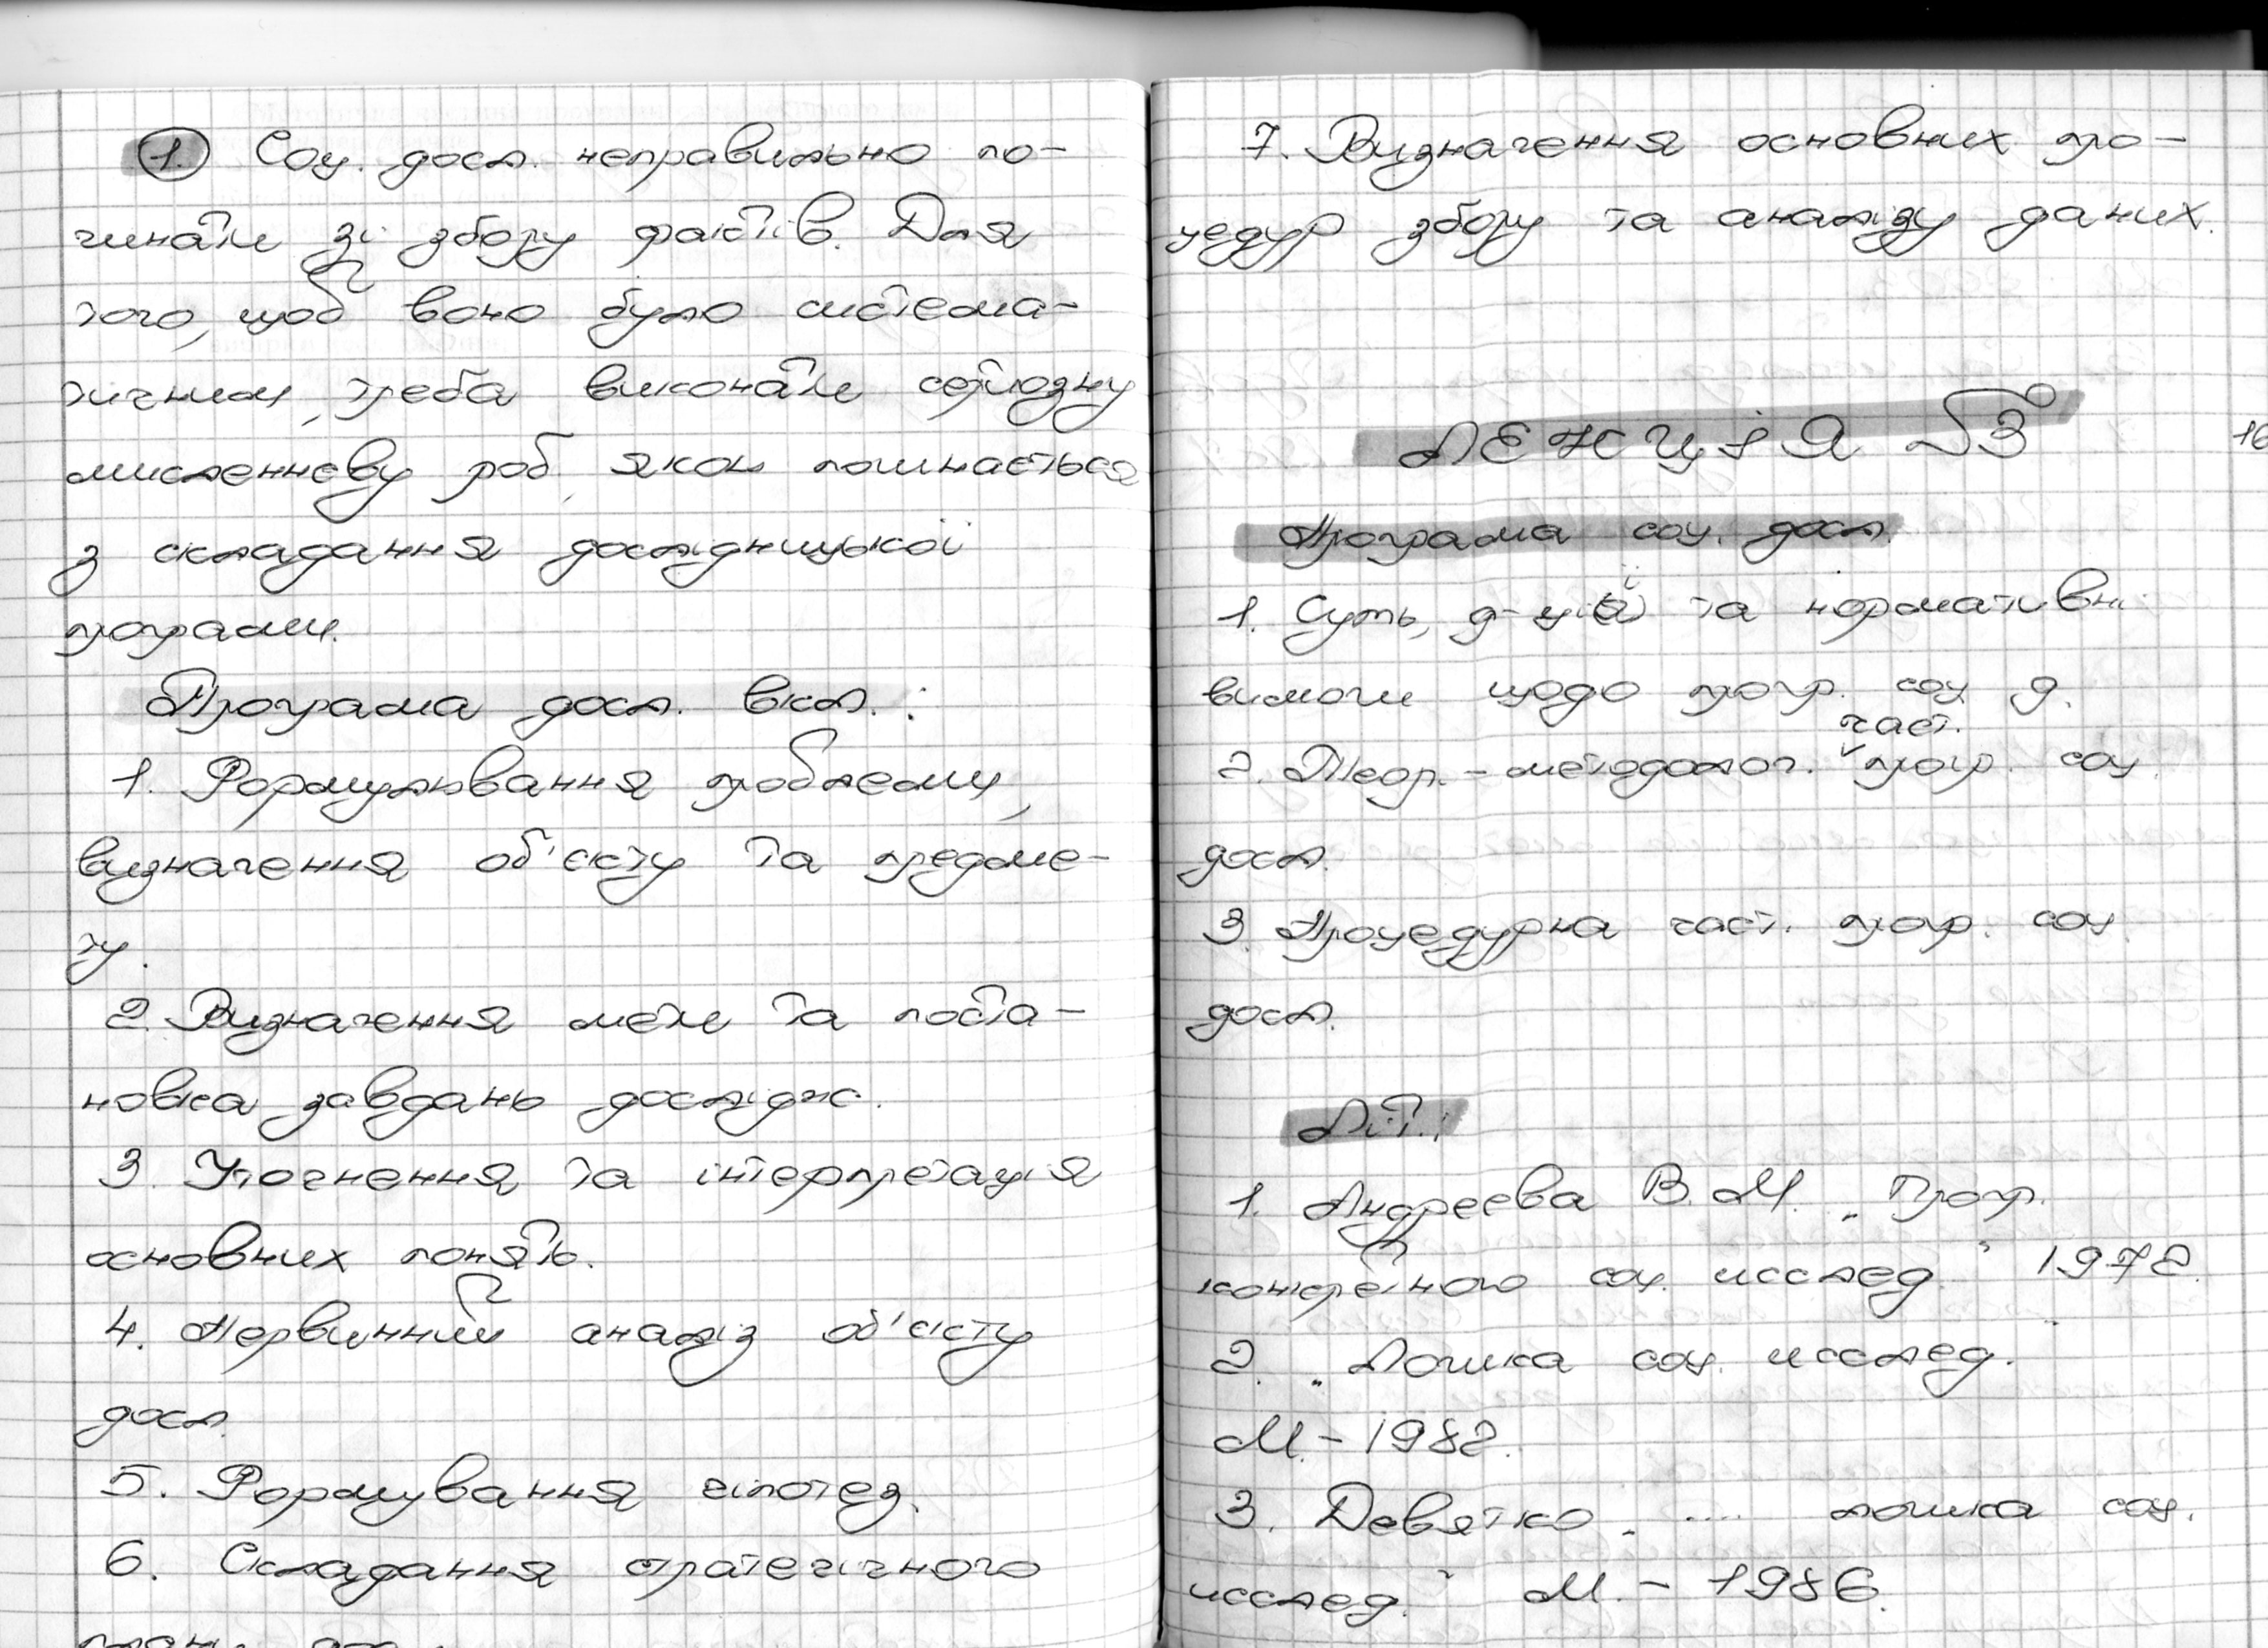 1. Соц. досл. неправильно по-
чинати зі збору фактів. Для
того, щоб воно було система-
тичним, треба виконати серйозну
мисленнєву роб., якою починається
з складання дослідницької
програми.
Програма досл. вкл.:
1. Формулювання проблеми,
визначення об'єкту та предме-
ту.
2. Визначення мети та поста-
новка завдань дослідж.
3. Уточнення та інтерпретація
основних понять.
4. Первинний аналіз об'єкту
досл.
5. Формування гіпотез.
6. Складання стратегічного
7. Визначення основних про-
цедур збору та аналізу даних.
ЛЕКЦІЯ №3
Програма соц. досл.
1. Суть, ф-ції та нормативні
вимоги щодо прогр. соц. д.
2. Теор.-методолог. част. прогр. соц.
досл.
3. Процедурна част. прогр. соц.
досл.
Літ.:
1. Андреева В.М. „Прогр.
конкретного соц. исслед." 1972.
2. „Логика соц. исслед."
М. - 1982.
3. Девятко „.... логика соц.
исслед." М. - 1986.